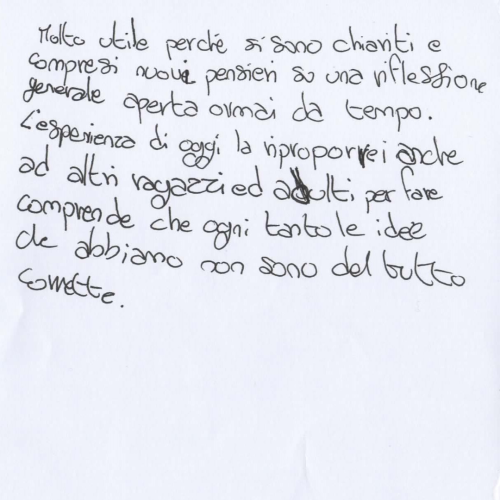 Molto utile perché si sono chiariti e
compresi nuovi pensieri su una riflessione
generale aperta ormai da tempo.
L'esperienza di oggi la riproporrei anche
ad altri ragazzi ed adulti per fare
comprende che ogni tanto le idee
che abbiamo non sono del tutto
corrette.